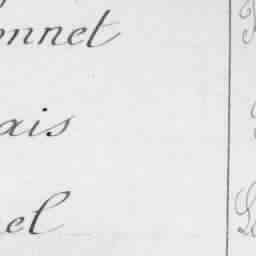 onnet
ais
el